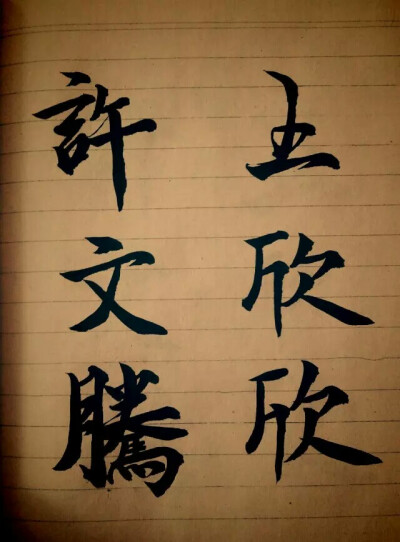 王欣欣
許文騰